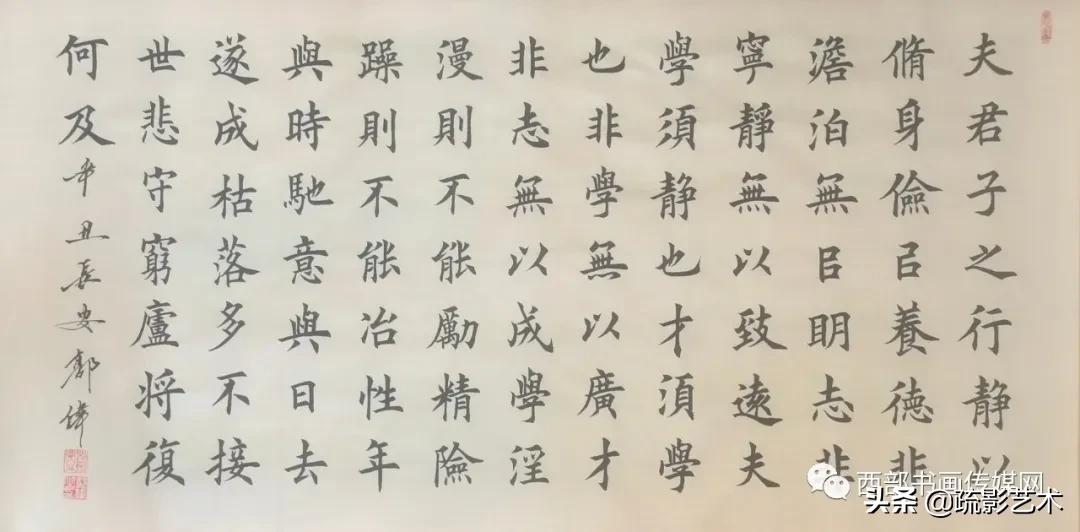 夫君子之行静以
脩身儉㠯養德非
澹泊無㠯眀志非
寧靜無以致遠夫
學須静也才須學
也非學無以廣才
非志無以成學淫
漫則不能勵精險
躁則不能冶性年
與時馳意與日去
遂成枯落多不接
世悲守窮廬将復
何及辛丑長安偉
西部书画传媒网
头条 @疏影艺术